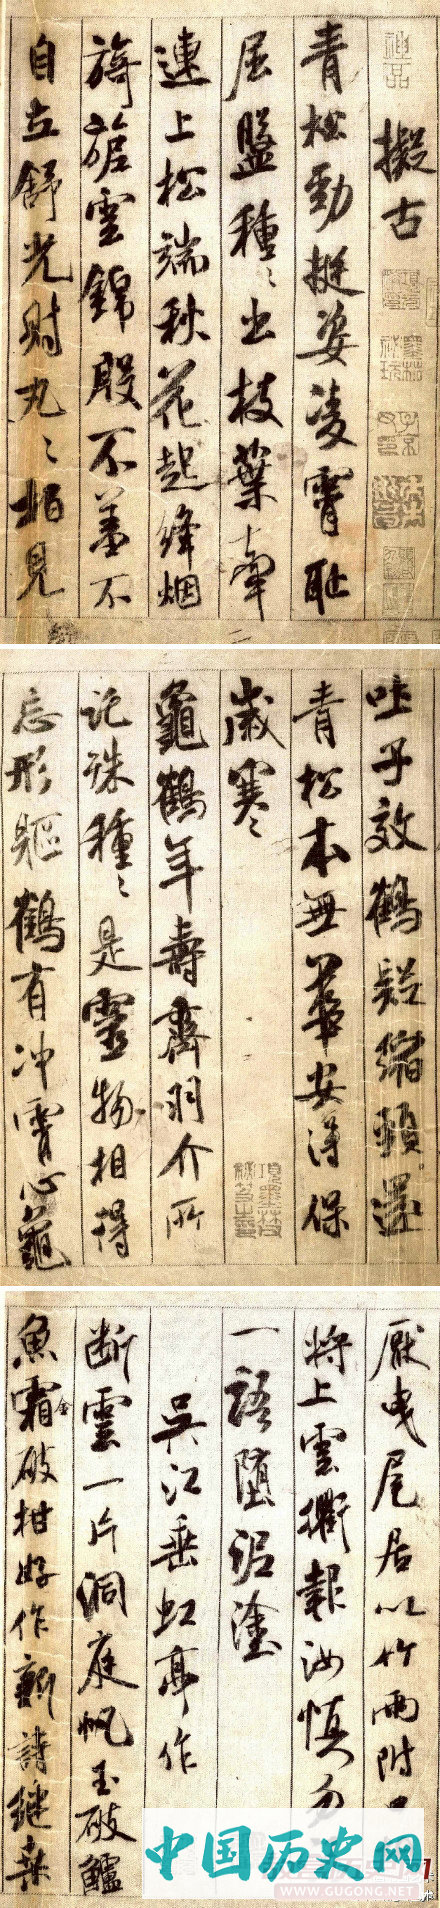 擬古
青松勁挺姿凌霄恥
屈盤種〻出枝葉牽
連上松端秋花起絳烟
旖旎雲錦殷不羞不
自立舒光射丸〻栢見
吐子效鶴疑縮頸還
青松本無華安得保
歲寒〻
龜鶴年壽齊羽介所
託殊種〻是靈物相得
忘形軀鶴有冲霄心龜
厭曳尾居以竹兩附
將上雲衢報汝慎勿
一語墮泥塗
吳江垂虹亭作
斷雲一片洞庭帆玉破鱸
魚霜金破柑好作新詩繼桑
中国历史网
WWW.GUGONG.NET